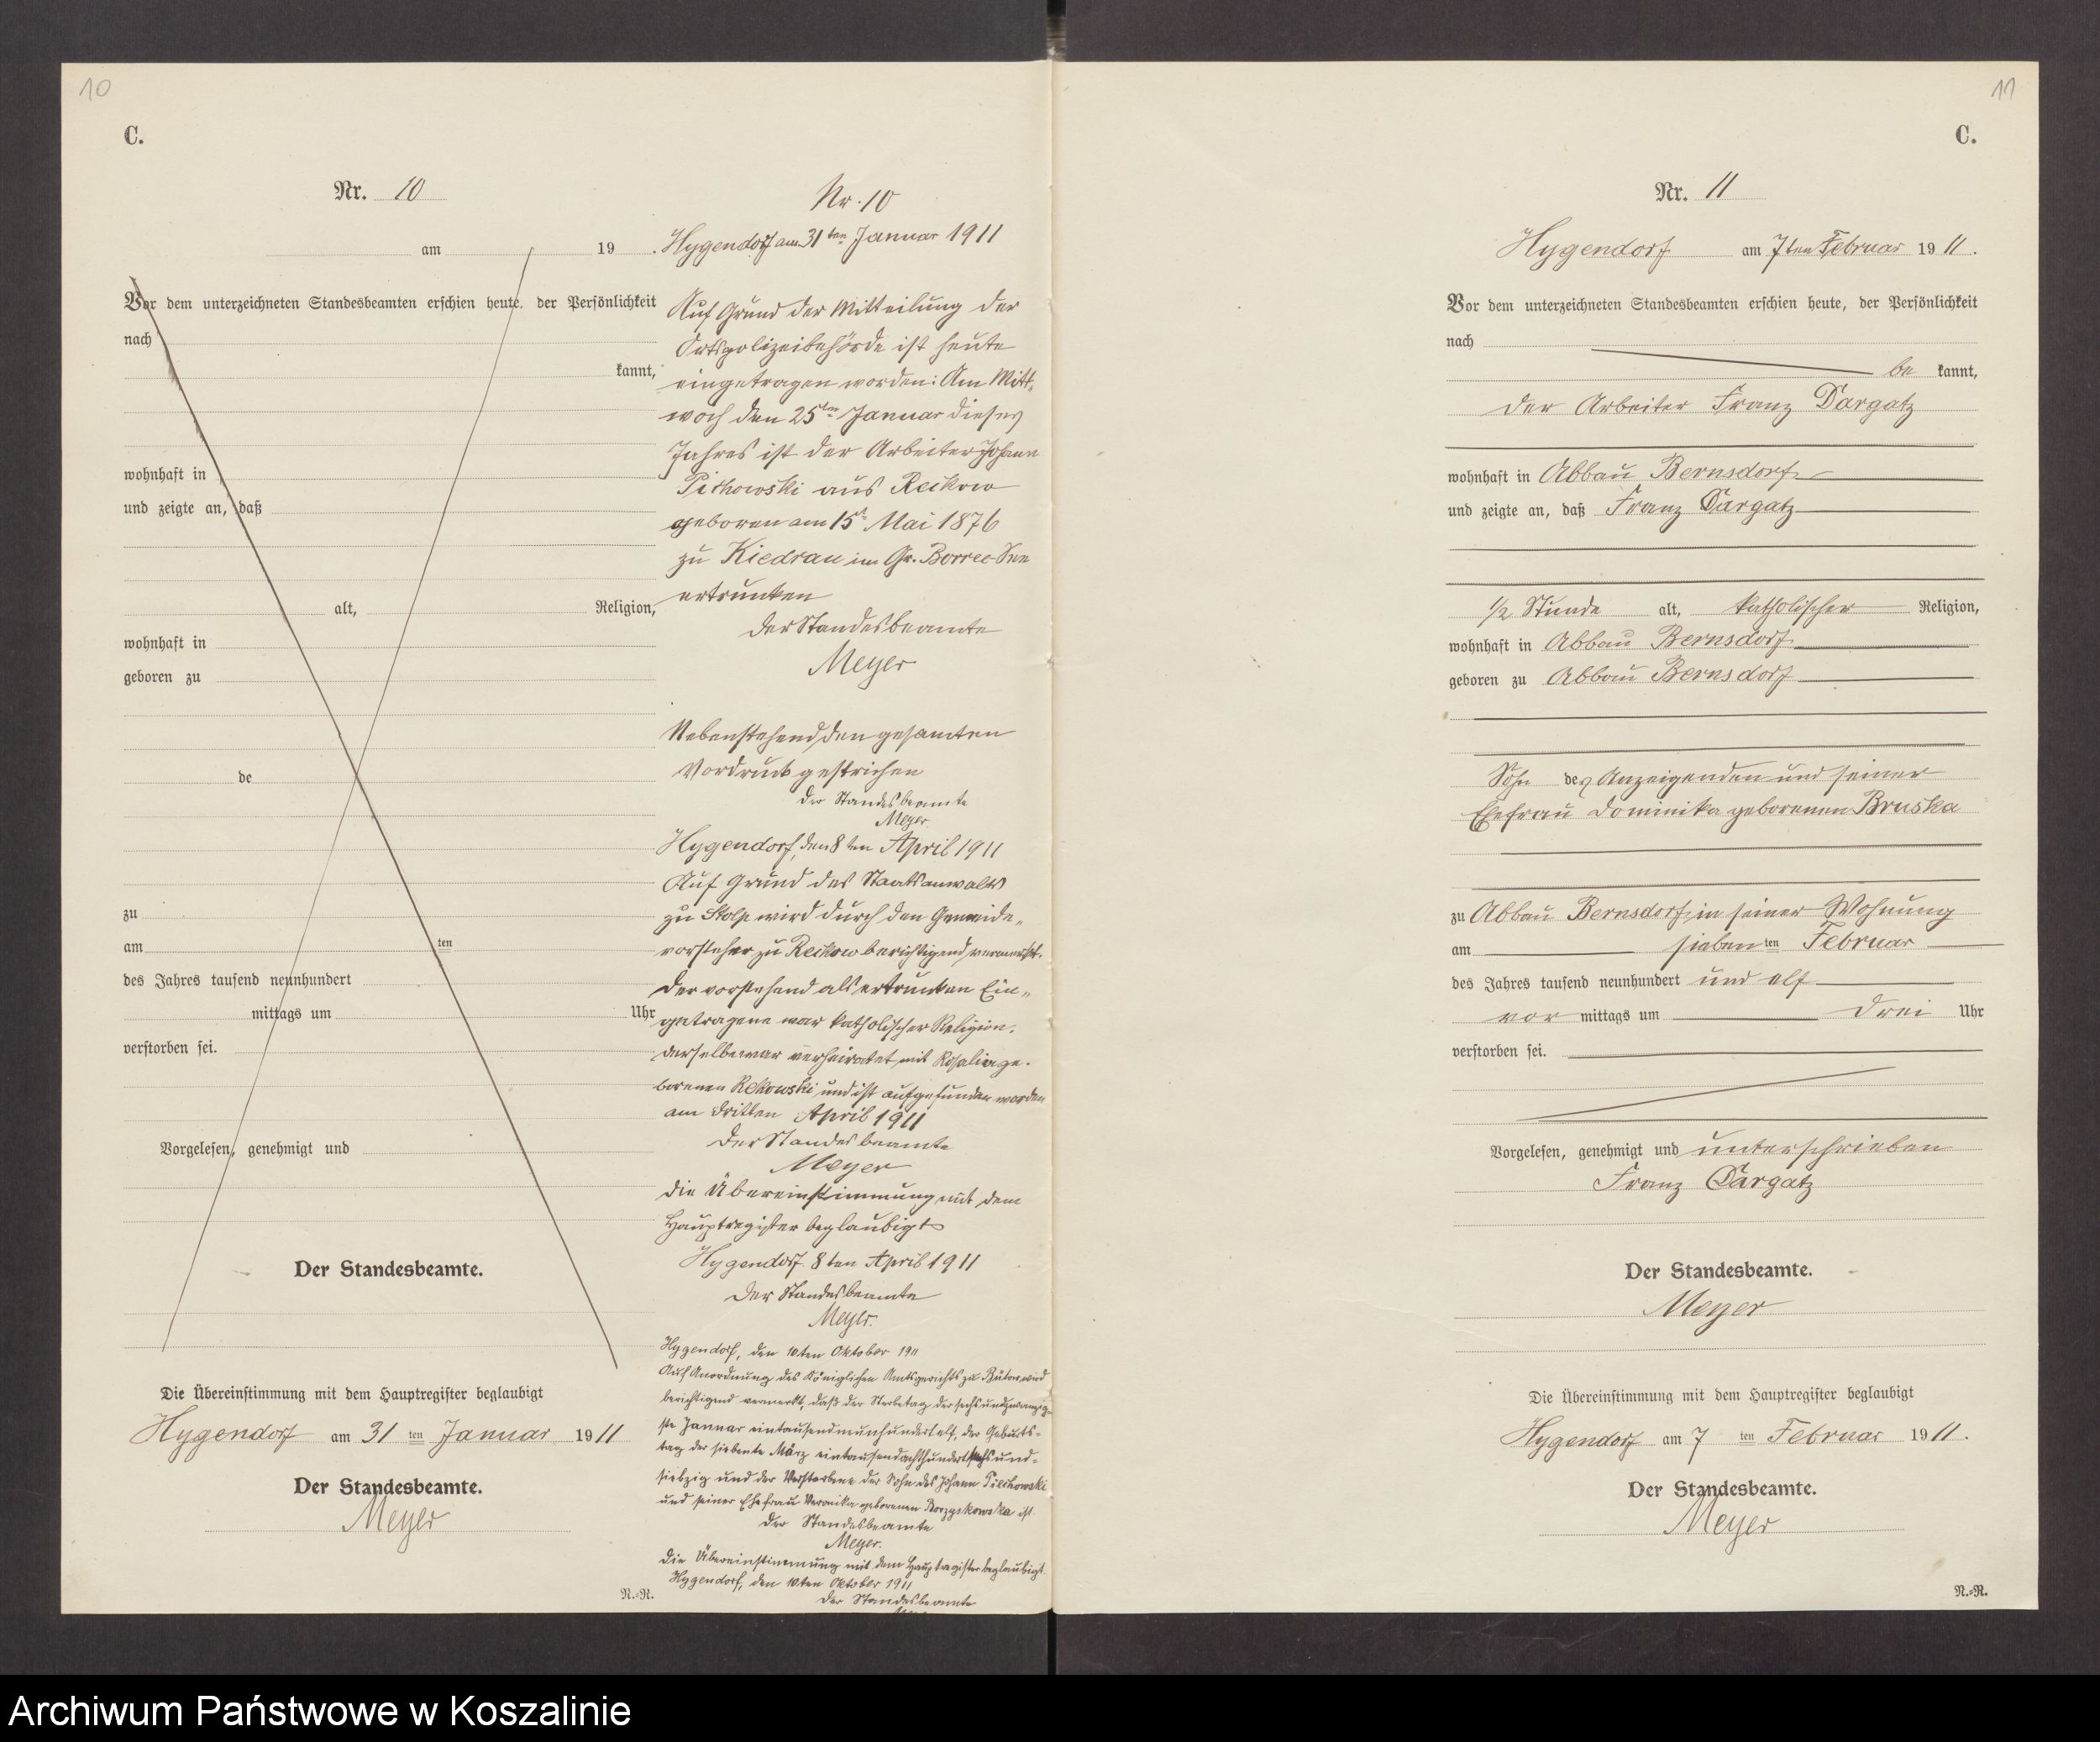 10
C.
Nr. 10
am 19 .
Vor dem unterzeichneten Standesbeamten erschien heute, der Persönlichkeit
nach
kannt,
wohnhaft in
und zeigte an, daß
alt, Religion,
wohnhaft in
geboren zu
de
zu
am ten
des Jahres tausend neunhundert
mittags um Uhr
verstorben sei.
Vorgelesen, genehmigt und
Der Standesbeamte.
Die Übereinstimmung mit dem Hauptregister beglaubigt
Hygendorf am 31 ten Januar 1911
Der Standesbeamte.
Meyer
N.-R.
Nr. 10
Hygendorf am 31ten Januar 1911
Auf Grund der Mitteilung der
Ortspolizeibehörde ist heute
eingetragen worden: Am Mitt-
woch den 25ten Januar dieses
Jahres ist der Arbeiter Johann
aus Reckow
geboren am 15t Mai 1876
zu Kiedrau im Gr. See
ertrunken
Der Standesbeamte
Meyer
Nebenstehend den gesamten
Vordruck gestrichen
Der Standesbeamte
Meyer
Hygendorf, den 8ten April 1911
Auf Grund des Staatsanwalts
zu Stolp wird durch den Gemeinde-
vorsteher zu Reckow berichtigend vermerkt.
Der vorstehend als ertrunken Ein-
getragene war katholischer Religion.
Derselbe war verheiratet mit Rosalia ge-
borenen Rekowski und ist aufgefunden worden
am dritten April 1911
Der Standesbeamte
Meyer
Die Übereinstimmung mit dem
Hauptregister beglaubigt
Hygendorf 8ten April 1911
Der Standesbeamte
Meyer.
Hygendorf, den 10ten Oktober 1911
Auf Anordnung des Königlichen Amtsgerichts zu Bütow wird
berichtigend vermerkt, daß der Sterbetag der sechsundzwanzig-
ste Januar eintausendneunhundertelf, der Geburts-
tag der siebente März eintausendachthundertsechsund-
siebzig und der Verstorbene der Sohn des Johann
und seiner Ehefrau Veronika geborenen Borzyskowska ist.
Der Standesbeamte
Meyer.
Die Übereinstimmung mit dem Hauptregister beglaubigt
Hygendorf, den 10ten Oktober 1911
Der Standesbeamte
11
C.
Nr. 11
Hygendorf am 7ten Februar 1911.
Vor dem unterzeichneten Standesbeamten erschien heute, der Persönlichkeit
nach
be kannt,
der Arbeiter Franz Dargatz
wohnhaft in Abbau Bernsdorf
und zeigte an, daß Franz Dargatz
1/2 Stunde alt, katholischer Religion,
wohnhaft in Abbau Bernsdorf
geboren zu Abbau Bernsdorf
Sohn des Anzeigenden und seiner
Ehefrau Dominika geborenen Bruska
zu Abbau Bernsdorf in seiner Wohnung
am sieben ten Februar
des Jahres tausend neunhundert und elf
vor mittags um drei Uhr
verstorben sei.
Vorgelesen, genehmigt und unterschrieben
Franz Dargatz
Der Standesbeamte.
Meyer
Die Übereinstimmung mit dem Hauptregister beglaubigt
Hygendorf am 7 ten Februar 1911.
Der Standesbeamte.
Meyer
N.-R.
Archiwum Państwowe w Koszalinie